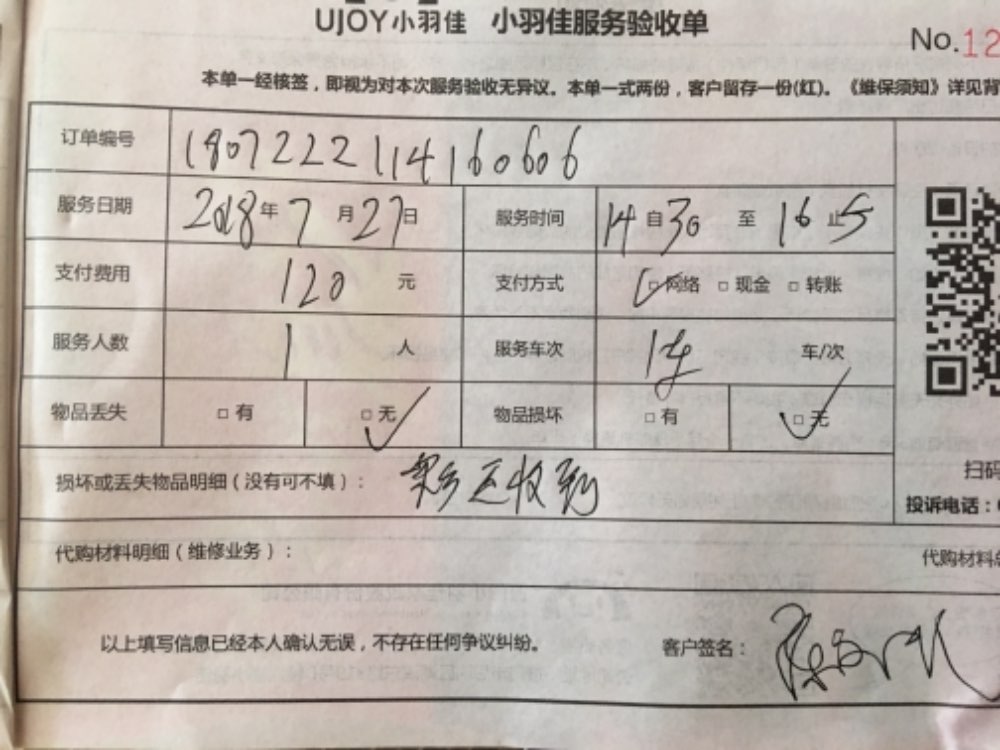 UJOY小羽佳 小羽佳服务验收单
No.12
本单一经核签，即视为对本次服务验收无异议。本单一式两份，客户留存一份(红)。《维保须知》详见背
订单编号 1807222114160606
服务日期 2018年7月27日 服务时间 14自30至16止5
支付费用 120元 支付方式 □网络 □现金 □转账
服务人数 1人 服务车次 1 车/次
物品丢失 □有 □无 物品损坏 □有 □无
损坏或丢失物品明细（没有可不填）： 收到
扫码
投诉电话：
代购材料明细（维修业务）： 代购材料总
以上填写信息已经本人确认无误，不存在任何争议纠纷。 客户签名：